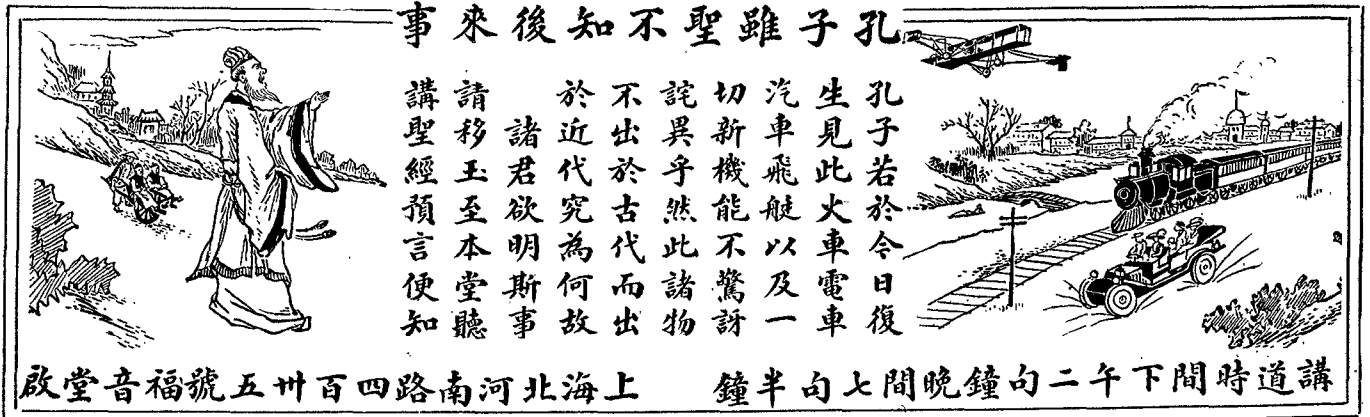 孔子雖聖不知後來事
孔子若於今日復
生見此火車電車
汽車飛艇以及一
切新機能不驚訝
詫異乎然此諸物
不出於古代而出
於近代究為何故
諸君欲明斯事
請移玉至本堂聽
講聖經預言便知
講道時間下午二句鐘晚間七句半鐘
上海北河南路四百卅五號福音堂啟